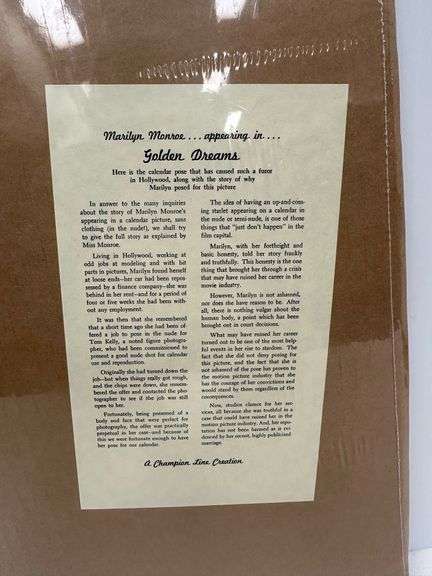 Marilyn Monroe . . . appearing in . . .
Golden Dreams
Here is the calendar pose that has caused such a furor
in Hollywood, along with the story of why
Marilyn posed for this picture
In answer to the many inquiries
about the story of Marilyn Monroe's
appearing in a calendar picture, sans
clothing (in the nude!), we shall try
to give the full story as explained by
Miss Monroe.
Living in Hollywood, working at
odd jobs at modeling and with bit
parts in pictures, Marilyn found herself
at loose ends—her car had been repos-
sessed by a finance company—she was
behind in her rent—and for a period of
four or five weeks she had been with-
out any employment.
It was then that she remembered
that a short time ago she had been of-
fered a job to pose in the nude for
Tom Kelly, a noted figure photogra-
pher, who had been commissioned to
present a good nude shot for calendar
use and reproduction.
Originally she had turned down the
job—but when things really got rough,
and the chips were down, she remem-
bered the offer and contacted the pho-
tographer to see if the job was still
open to her.
Fortunately, being possessed of a
body and face that were perfect for
photography, the offer was practically
perpetual in her case—and because of
this we were fortunate enough to have
her pose for our calendar.
The idea of having an up-and-com-
ing starlet appearing on a calendar in
the nude or semi-nude, is one of those
things that "just don't happen" in the
film capital.
Marilyn, with her forthright and
basic honesty, told her story frankly
and truthfully. This honesty is the one
thing that brought her through a crisis
that may have ruined her career in the
movie industry.
However, Marilyn is not ashamed,
nor does she have reason to be. After
all, there is nothing vulgar about the
human body, a point which has been
brought out in court decisions.
What may have ruined her career
turned out to be one of the most help-
ful events in her rise to stardom. The
fact that she did not deny posing for
this picture, and the fact that she is
not ashamed of the pose has proven to
the motion picture industry that she
has the courage of her convictions and
would stand by them regardless of the
consequences.
Now, studios clamor for her ser-
vices, all because she was truthful in a
case that could have ruined her in the
motion picture industry. And, her repu-
tation has not been harmed as is evi-
denced by her recent, highly publicized
marriage.
A Champion Line Creation